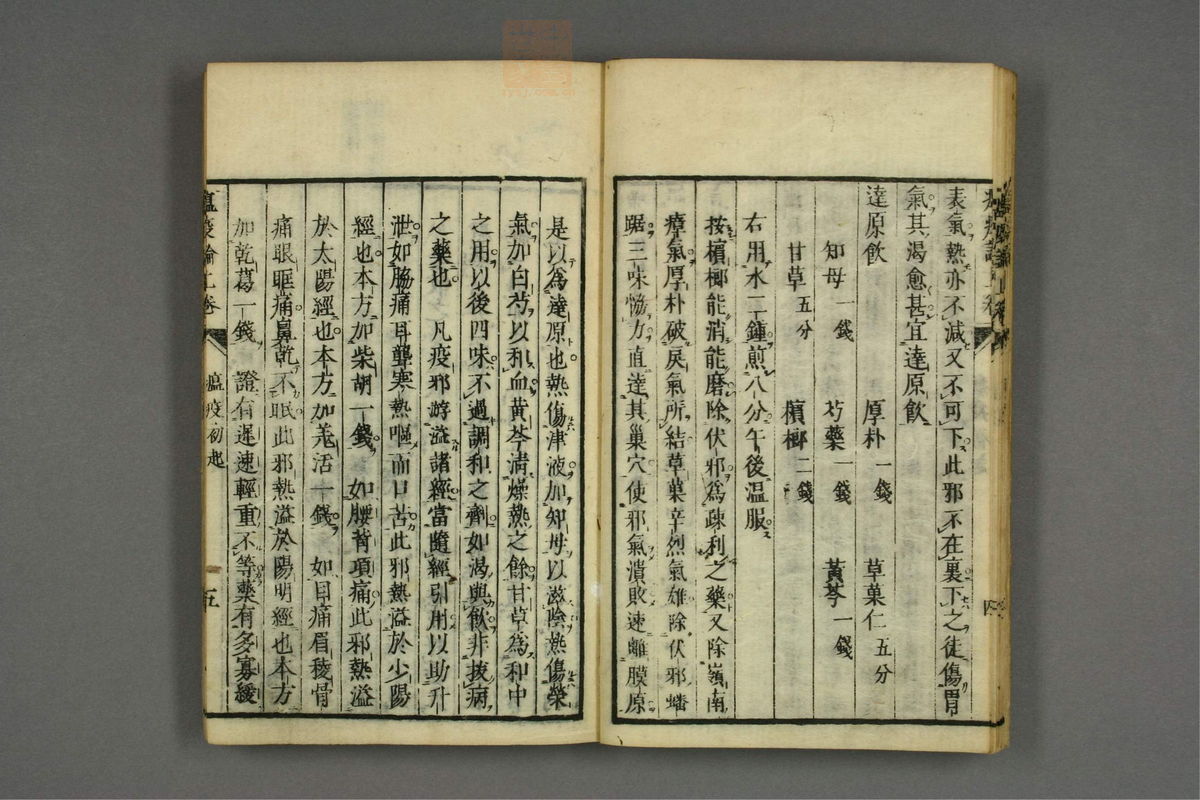 表氣熱亦不減又不可下此邪不在裏下之徒傷胃
氣其渴愈甚宜達原飲
達原飲
檳榔二錢 厚朴一錢 草菓仁五分
知母一錢 芍藥一錢 黃芩一錢
甘草五分
右用水二鍾煎八分午後温服
按檳榔能消能磨除伏邪為疎利之藥又除嶺南
瘴氣厚朴破戾氣所結草菓辛烈氣雄除伏邪蟠
踞三味恊力直達其巢穴使邪氣潰敗速離膜原
四
是以為達原也熱傷津液加知母以滋陰熱傷榮
氣加白芍以和血黃芩清燥熱之餘甘草為和中
之用以後四味不過調和之劑如渴與飲非拔病
之藥也 凡疫邪游溢諸經當隨經引用以助升
泄如脇痛耳聾寒熱嘔而口苦此邪熱溢於少陽
經也本方加柴胡一錢 如腰背項痛此邪熱溢
於太陽經也本方加羗活一錢 如目痛眉稜骨
痛眼眶痛鼻乾不眠此邪熱溢於陽明經也本方
加乾葛一錢 證有遲速輕重不等藥有多寡緩
瘟疫論上卷 瘟疫初起 五